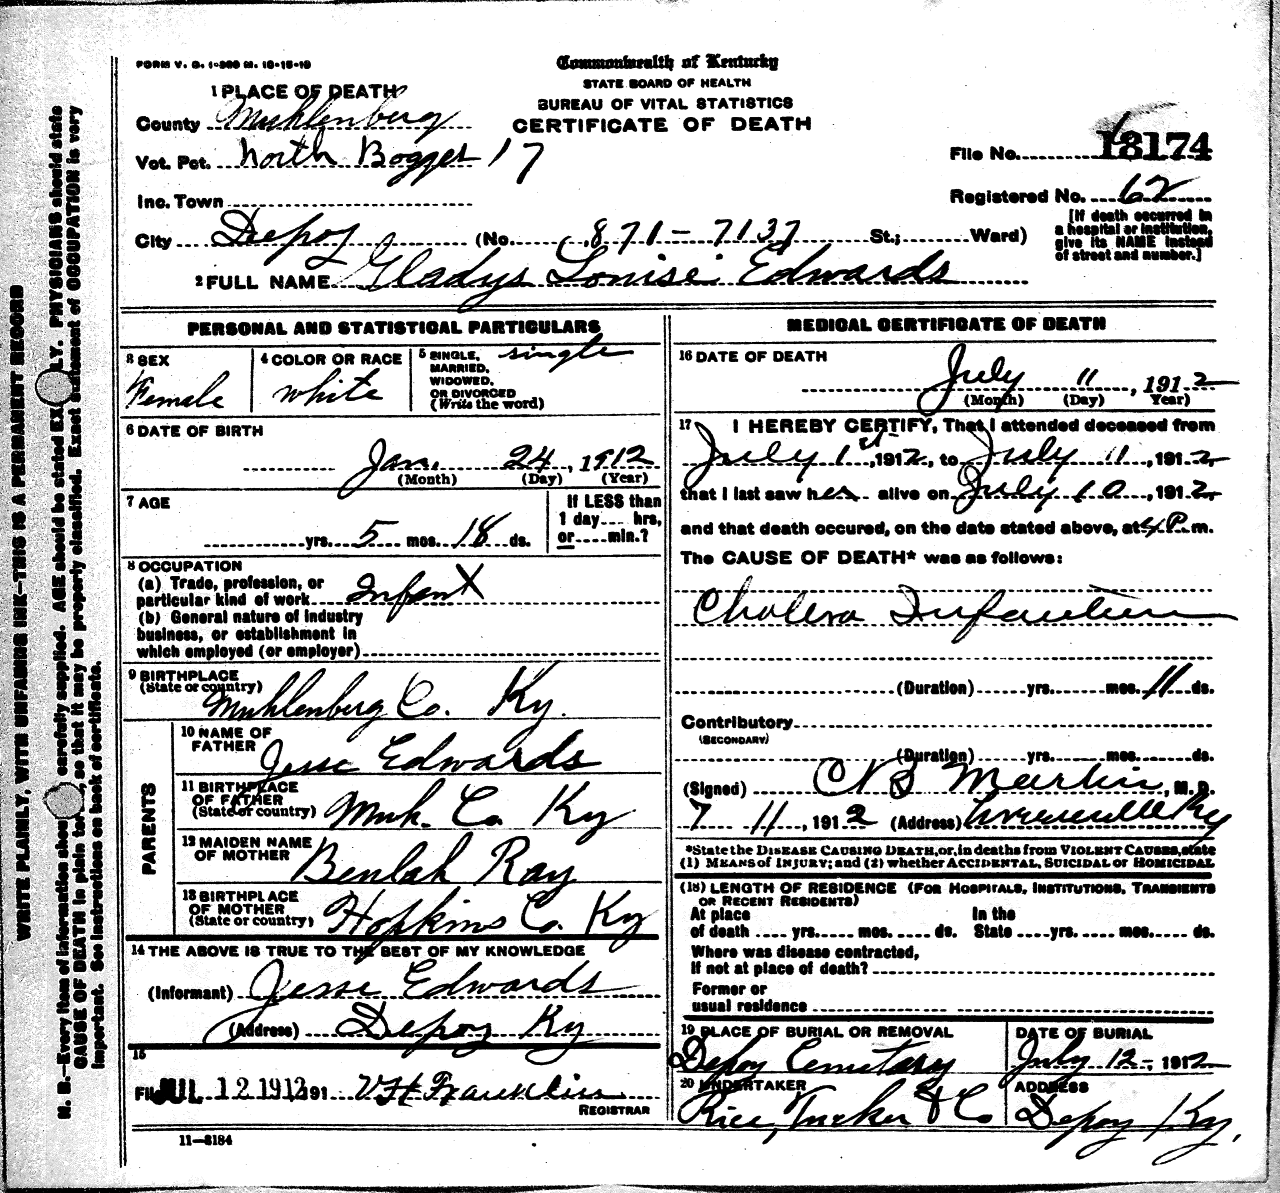 FORM V. S. 1-300 M. 10-15-10
Commonwealth of Kentucky
STATE BOARD OF HEALTH
BUREAU OF VITAL STATISTICS
CERTIFICATE OF DEATH
1 PLACE OF DEATH
County Muhlenberg
Vot. Pct. North Bogges 17
Inc. Town
City Depoy (No. 871-7137 St.; Ward)
File No. 18174
Registered No. 62
[If death occurred in
a hospital or institution,
give its NAME instead
of street and number.]
2 FULL NAME Gladys Louise Edwards
PERSONAL AND STATISTICAL PARTICULARS
3 SEX
Female
4 COLOR OR RACE
white
5 SINGLE,
MARRIED,
WIDOWED,
OR DIVORCED
(Write the word)
single
6 DATE OF BIRTH
Jan. 24, 1912
(Month) (Day) (Year)
7 AGE
yrs. 5 mos. 18 ds.
If LESS than
1 day.... hrs,
or.....min.?
8 OCCUPATION
(a) Trade, profession, or
particular kind of work Infant
(b) General nature of industry
business, or establishment in
which employed (or employer)
9 BIRTHPLACE
(State or country)
Muhlenberg Co. Ky.
PARENTS
10 NAME OF
FATHER
Jesse Edwards
11 BIRTHPLACE
OF FATHER
(State or country) Muh. Co Ky
12 MAIDEN NAME
OF MOTHER
Beulah Ray
13 BIRTHPLACE
OF MOTHER
(State or country) Hopkins Co. Ky
14 THE ABOVE IS TRUE TO THE BEST OF MY KNOWLEDGE
(Informant) Jesse Edwards
(Address) Depoy Ky
15
JUL 12 1912 191 Franklin
REGISTRAR
11-3184
MEDICAL CERTIFICATE OF DEATH
16 DATE OF DEATH
July 11, 1912
(Month) (Day) Year)
17 I HEREBY CERTIFY, That I attended deceased from
July 1st, 1912, to July 11, 1912,
that I last saw her alive on July 10, 1912,
and that death occured, on the date stated above, at 4 P. m.
The CAUSE OF DEATH* was as follows:
Cholera Infantum
(Duration) yrs. mos. 11 ds.
Contributory
(SECONDARY)
(Duration) yrs. mos. ds.
(Signed) Martin, M. D.
7 11, 1912 (Address) Greenville Ky
*State the DISEASE CAUSING DEATH, or, in deaths from VIOLENT CAUSES, state
(1) MEANS of INJURY; and (2) whether ACCIDENTAL, SUICIDAL or HOMICIDAL
(18) LENGTH OF RESIDENCE (FOR HOSPITALS, INSTITUTIONS, TRANSIENTS
OR RECENT RESIDENTS)
At place In the
of death .... yrs. .... mos. .... ds. State ....yrs. .... mos. .... ds.
Where was disease contracted,
if not at place of death?
Former or
usual residence
19 PLACE OF BURIAL OR REMOVAL
Depoy Cemetary
DATE OF BURIAL
July 12, 1912
20 UNDERTAKER
Rice, Tucker & Co
ADDRESS
Depoy Ky.
WRITE PLAINLY, WITH UNFADING INK—THIS IS A PERMANENT RECORD
N. B.—Every item of information carefully supplied. AGE should be stated PHYSICIANS should state
CAUSE OF DEATH in plain so that it may be properly classified. Exact statement of OCCUPATION is very
important. See instructions on back of certificate.